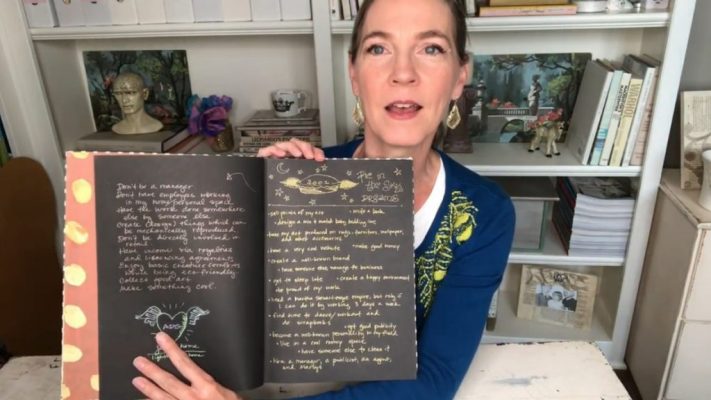 Don't be a manager
Don't have employees working
in my home/personal space
Have the work done somewhere
else by someone else
Create (design) things which can
be mechanically reproduced.
Don't be directly involved in
retail
Have income via royalties
and licensing agreements
Enjoy basic creature comforts
while being eco-friendly
Collect good art
Make something cool.
home
2002
Pie in
the sky
Dreams
sell prints of my art
write a book
design a mix & match baby bedding line
have my art produced on rugs, furniture, wallpaper,
and other accessories
have a very cool website
make good money
create a well-known brand
have someone else manage the business
get to sleep late
create a happy environment
be proud of my work
lead a Martha Stewartesque empire, but only if
I can do it by working 3 days a week
find time to dance/workout and
do scrapbooks
get good publicity
become a well-known personality in my field
live in a cool roomy space
have someone else to clean it
hire a manager, a publicist, an agent,
and